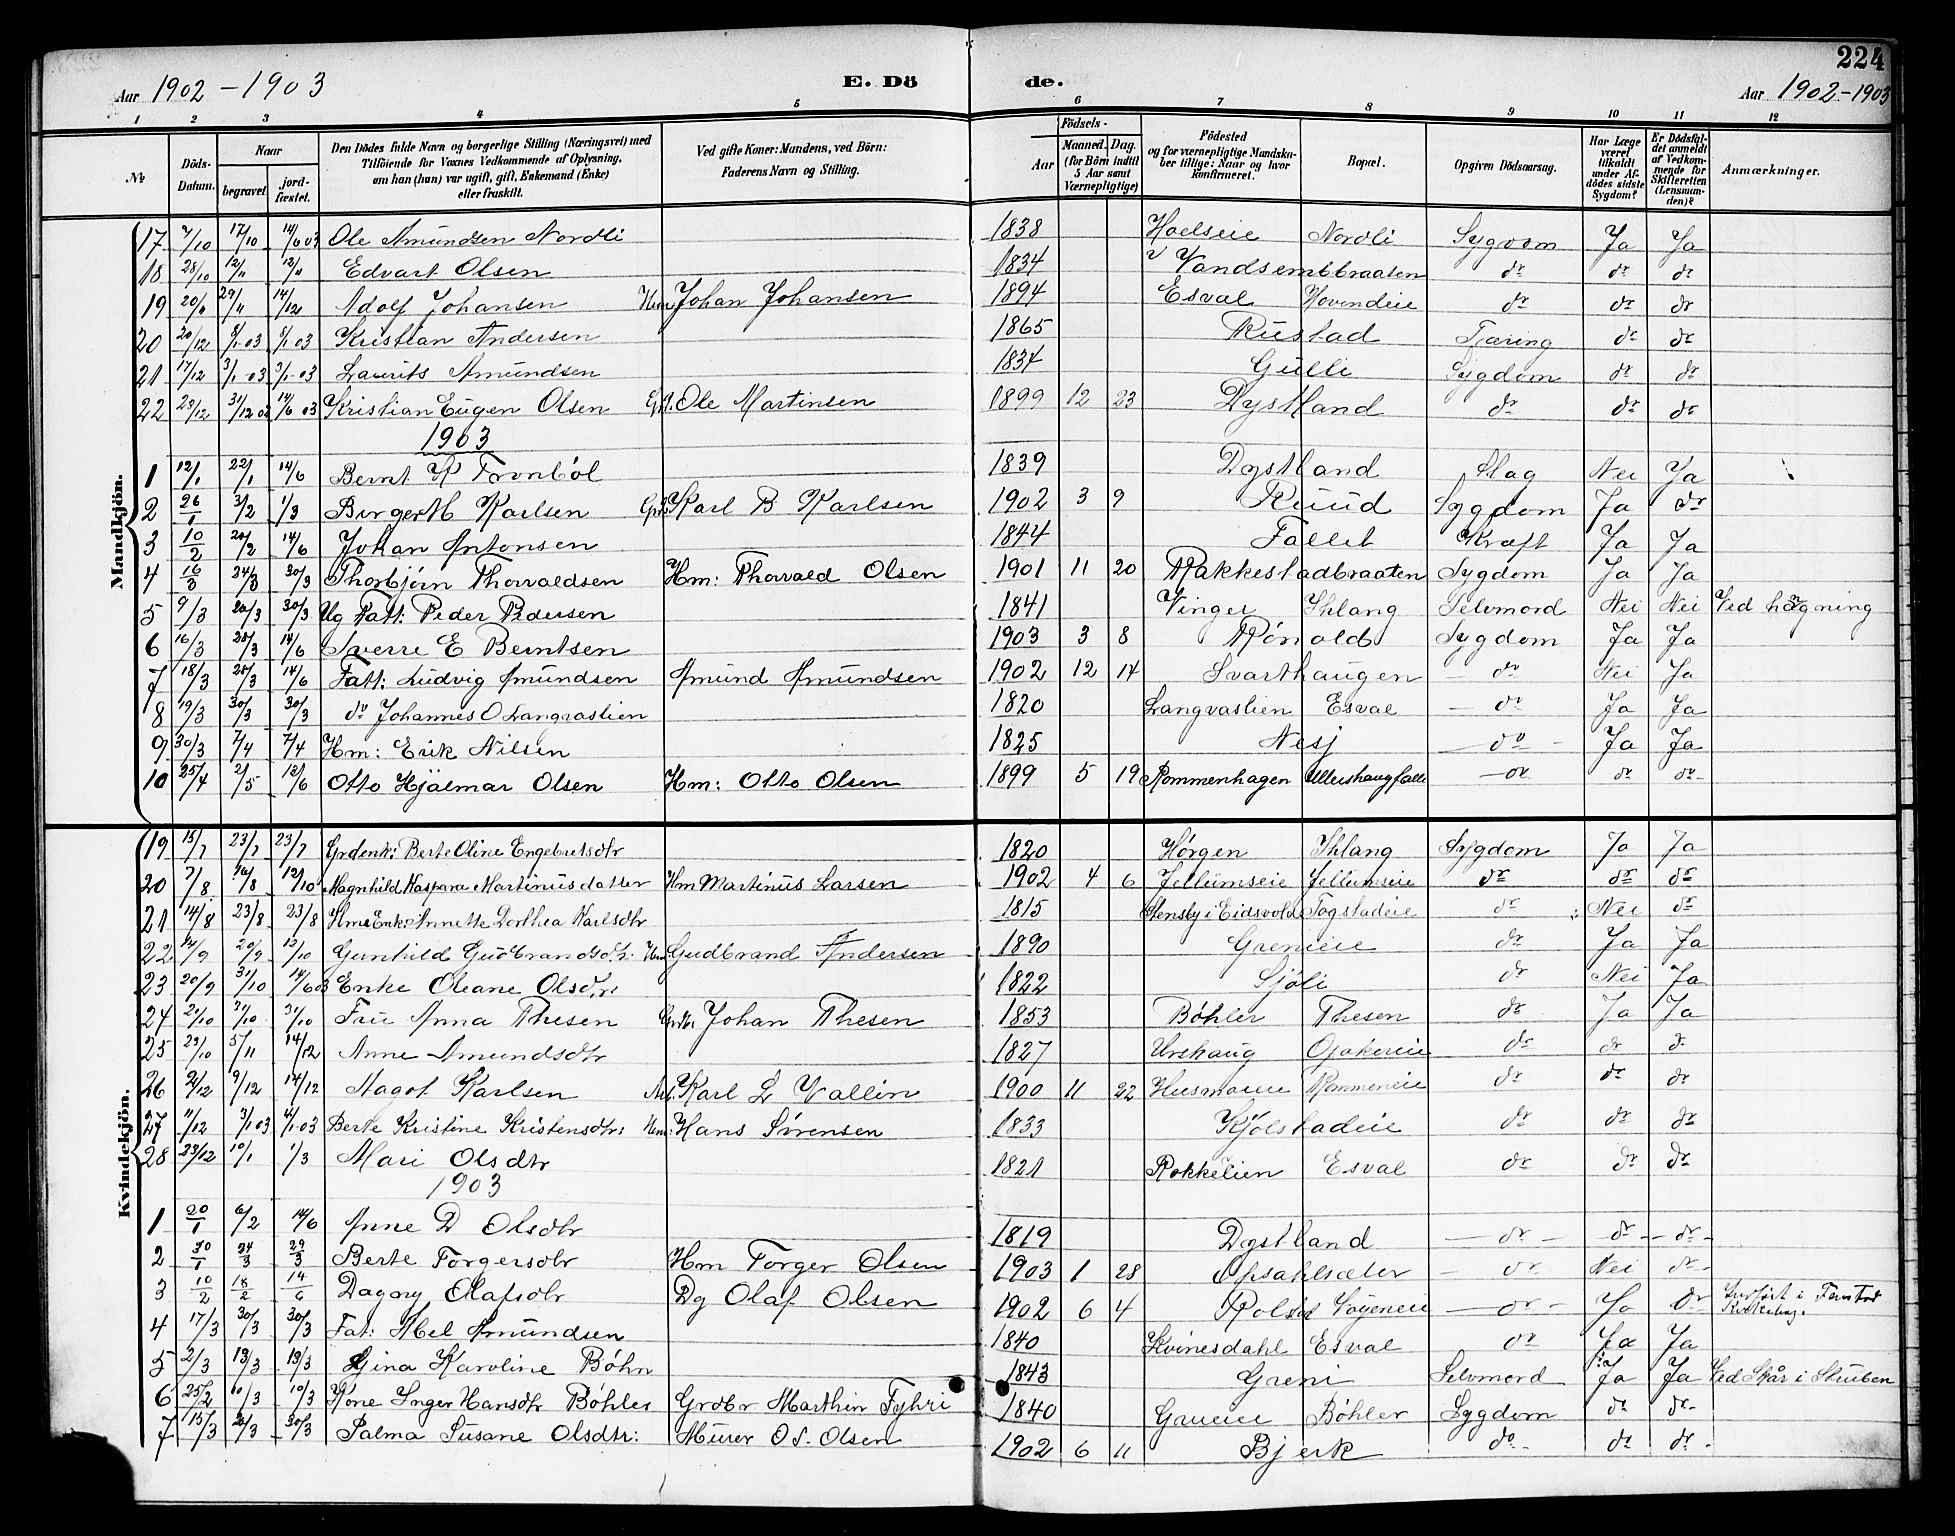 224
Aar 1902-1903 E. Dö de. Aar 1902-1903
1 2 3 4 5 6 7 8 9 10 11 12
№ Döds-Datum. Naar begravet. jordfæstet. Den Dödes fulde Navn og borgerlige Stilling (Næringsvei) med Tilföiende for Voxnes Vedkommende af Oplysning, om han (hun) var ugift, gift, Enkemand (Enke) eller fraskilt. Ved gifte Koner: Mandens, ved Börn: Faderens Navn og Stilling. Födsels- Aar Maaned. Dag. (for Börn indtil 5 Aar samt Værnepligtige) Födested og for værnepligtige Mandskaber tillige: Naar og hvor konfirmeret. Bopæl. Opgiven Dödsaarsag. Har Læge været tilkaldt under Afdödes sidste Sygdom? Er Dödsfaldet anmeldt af Vedkommende for Skifteretten (Lensmanden)? Anmærkninger.
Mandkjön.
17 7/10 17/10 14/6 03 Ole Amundsen Nordli 1838 Hoelseie Nordli Sygdom Ja Ja
18 28/10 12/11 12/11 Edvart Olsen 1834 Vandsembbraaten do do do
19 29/11 14/12 Adolf Johansen Hm Johan Johansen 1894 Esval Hovindeie do do do
20 20/12 8/1-03 8/1 03 Kristian Andersen 1865 Rustad Tæring do do
21 17/12 3/1-03 3/1-03 Laurits Amundsen 1834 Gulli Sygdom do do
22 23/12 31/12 02 14/6 03 Kristian Eugen Olsen Ole Martinsen 1899 12 23 Dystland do do do
1903
1 12/1 22/1 14/6 Bernt K Tronböl 1839 Dystland Slag Nei Ja
2 26/1 3/2 1/3 Birger M Karlsen Karl B Karlsen 1902 3 9 Ruud Sygdom Ja do
3 10/2 20/2 14/6 Johan Antonsen 1844 Fallet Kræft Ja Ja
4 16/3 24/3 30/3 Thorbjörn Thorvaldsen Hm: Thorvald Olsen 1901 11 20 Rakkestadbraaten Sygdom Ja Ja
5 9/3 20/3 30/3 Ug Fatt: Peder Pedersen 1841 Vinger Ihlang Selvmord Nei Nei Ved hængning
6 16/3 28/3 14/6 Sverre E Berntsen 1903 3 8 Rönold Sygdom Ja Ja
7 18/3 28/3 14/6 Fatt: Ludvig Amundsen Amund Amundsen 1902 12 14 Svarthaugen do Nei Ja
8 19/3 30/3 30/3 do Johannes O Langvaslien 1820 Langvaslien Esval do Ja Ja
9 30/3 7/4 7/4 Hm: Erik Nilsen 1825 Nesj do Ja Ja
10 25/4 2/5 12/6 Otto Hjalmar Olsen Hm: Otto Olsen 1899 5 19 Rommenhagen do do do
Kvindekjön.
19 15/7 23/7 23/7 Grdenk: Berte Oline Engebretsdtr 1820 Hørgen Ihlang Sygdom Ja Ja
20 7/8 16/8 12/10 Magnhild Kaspara Martinusdatter Hm Martinus Larsen 1902 4 6 Jellumseie Jellumseie do do do
21 14/8 23/8 23/8 Hms Enke: Annette Dorthea Karlsdtr 1815 Stensby i Eidsvold Togstadeie do Nei do
22 14/9 20/9 12/10 Gunhild Gudbrandsdtr: Hm Gudbrand Andersen 1890 Grenieie do Ja Ja
23 20/9 3/10 14/6 03 Enke Oleane Olsdtr 1822 Sjöli do Nei Ja
24 21/10 31/10 31/10 Fru Anna Thesen Grdbr. Johan Thesen 1853 Böhler Thesen do Ja Ja
25 29/10 5/11 14/12 Anne Amundsdtr 1827 Urehaug Ojakereie do do do
26 2/12 9/12 14/12 Magot Karlsen Arb. Karl L Vallin 1900 11 22 Husmoeie Rommeneie do do do
27 11/12 3/1 03 4/1-03 Berte Kristine Kristensdtr: Hm: Hans Sørensen 1833 Kjölstadeie do do do
28 23/12 10/1 1/3 Mari Olsdtr 1821 Rokkelien Esval do do do
1903
1 20/1 6/2 14/6 Anne D Olsdtr 1819 Dystland do do do
2 30/1 24/3 29/3 Berte Torgersdtr Hm Torger Olsen 1903 1 28 Opsahlsæter do Nei do
3 10/2 18/2 14/6 Dagny Olafsdtr Dg Olaf Olsen 1902 6 4 do Ja do
4 17/3 30/3 30/3 Fat: Abel Amundsen 1840 Kvinesdahl Esval do Ja Ja
5 2/3 13/3 13/3 Gina Karoline Böhn 1843 Greni Selvmord Ja Ja Ved Skår i Struben
6 25/2 10/3 10/3 Kone Inger Hansdtr Böhler Grdbr Marthin Fyhri 1840 Grueeie Böhler Sygdom do do
7 15/3 24/3 30/3 Palma Susane Olsdtr: Murer O S. Olsen 1902 6 11 Bjerk do do do